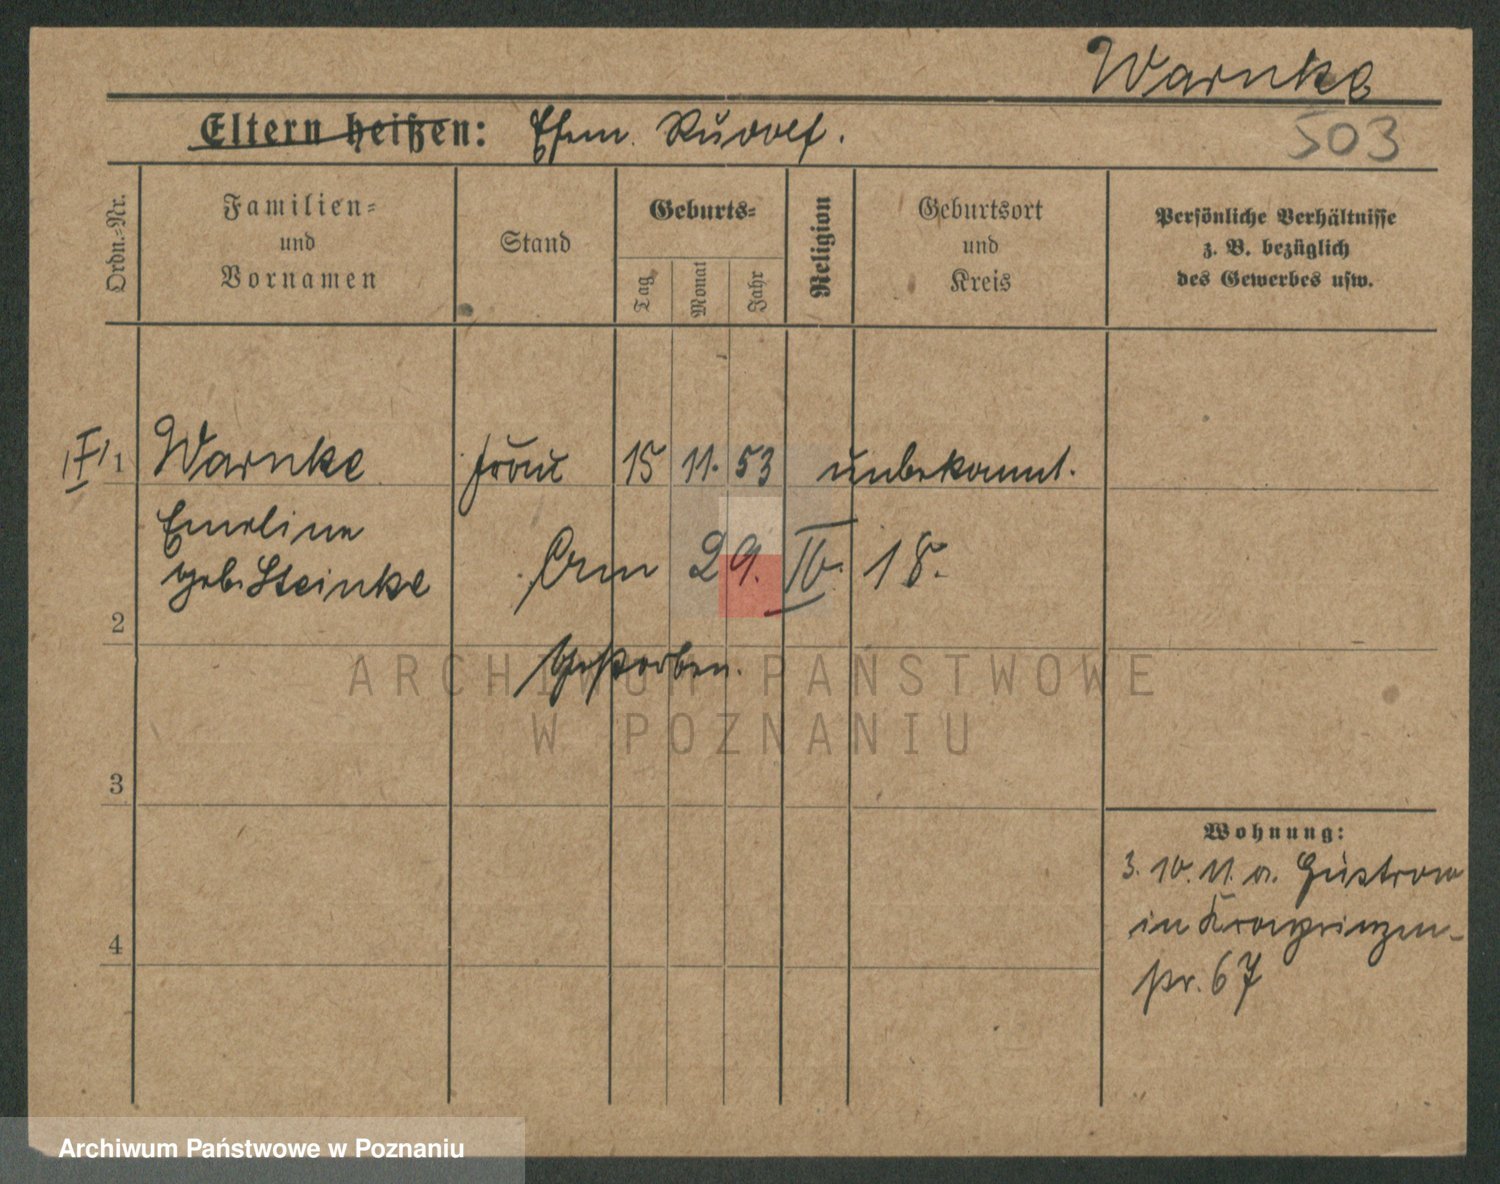 Warnke
503
Eltern heißen: Ehem. Rudolf.
Ordn.-Nr.
Familien-
und
Vornamen
Stand
Geburts-
Tag
Monat
Jahr
Religion
Geburtsort
und
Kreis
Persönliche Verhältnisse
z. B. bezüglich
des Gewerbes usw.
1 Warnke Frau 15 11. 53 unbekannt.
Emeline
geb. Steinke
Am 29. IV. 18.
2
gestorben.
ARCHIWUM PAŃSTWOWE
W POZNANIU
3
Wohnung:
3. 10. 11. a. Güstrow
in Kronprinzen-
str. 67
4
Archiwum Państwowe w Poznaniu